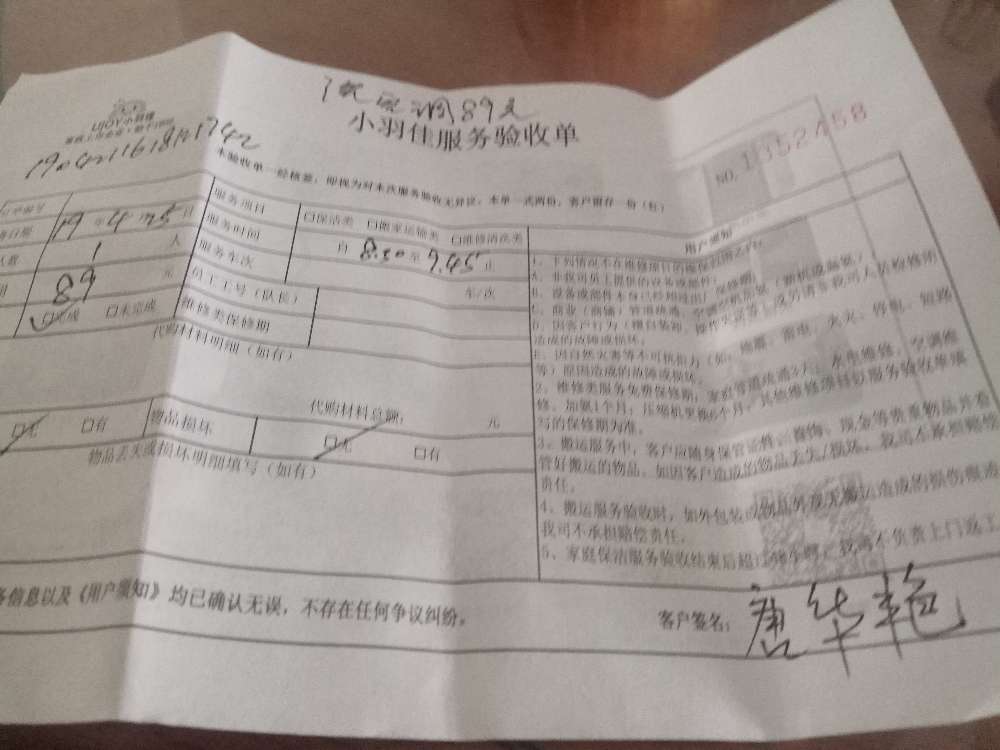 洗空调89元
小羽佳服务验收单
UJOY小羽佳
NO. 1352458
本验收单一经核签，即视为对本次服务验收无异议。本单一式两份，客户留存一份（红）
19年4月5日
服务项目
口保洁类 口搬家运输类 口维修清洗类
用户须知
服务时间
自8.50至9.45止
1 人
服务车次
车/次
89 元
员工工号（队长）
口完成 口未完成
维修类保修期
代购材料明细（如有）
代购材料总额： 元
口无 口有
物品损坏
口无 口有
物品丢失或损坏明细填写（如有）
1、下列情况不在维修项目的维保范围之内：
A、非我司员工提供的设备或部件；
B、设备或部件本身已经超过出厂保修期；
D、因客户行为（擅自装卸、操作失误等）或另请非我司人员检修所
造成的故障或损坏。
E、因自然灾害等不可抗拒力（如：地震、雷电、火灾、停电、短路
等）原因造成的故障或损坏。
2、维修类服务免费保修期：家庭管道疏通3天，水电维修、空调维
修、加氟1个月，压缩机更换6个月，其他维修项目以服务验收单填
写的保修期为准。
3、搬运服务中，客户应随身保管证件、首饰、现金等贵重物品并看
管好搬运的物品。如因客户造成的物品丢失/损坏，我司不承担赔偿
责任。
4、搬运服务验收时，如外包装或物品外观无搬运造成的损伤痕迹
我司不承担赔偿责任。
5、家庭保洁服务验收结束后超过
我司不负责上门返工
务信息以及《用户须知》均已确认无误，不存在任何争议纠纷。
客户签名：唐华艳